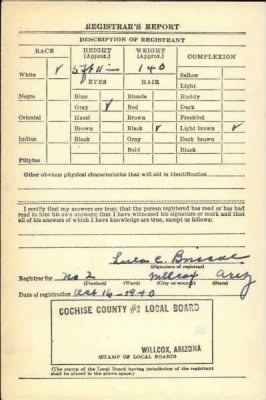 REGISTRAR'S REPORT
DESCRIPTION OF REGISTRANT
RACE HEIGHT (Approx.) WEIGHT (Approx.) COMPLEXION
White ✓ 5 ft 11 ins 140 Sallow
EYES HAIR Light
Negro Blue Blonde Ruddy
Gray ✓ Red Dark
Oriental Hazel Brown Freckled
Brown Black ✓ Light brown ✓
Indian Black Gray Dark brown
Bald Black
Filipino
Other obvious physical characteristics that will aid in identification
I certify that my answers are true; that the person registered has read or has had
read to him his own answers; that I have witnessed his signature or mark and that
all of his answers of which I have knowledge are true, except as follows:
Lula C. Briscoe
(Signature of registrar)
Registrar for No. 2 Willcox Ariz
(Precinct) (Ward) (City or county) (State)
Date of registration Oct. 16-1940
COCHISE COUNTY #2 LOCAL BOARD
WILLCOX, ARIZONA
(STAMP OF LOCAL BOARD)
(The stamp of the Local Board having jurisdiction of the registrant
shall be placed in the above space.)